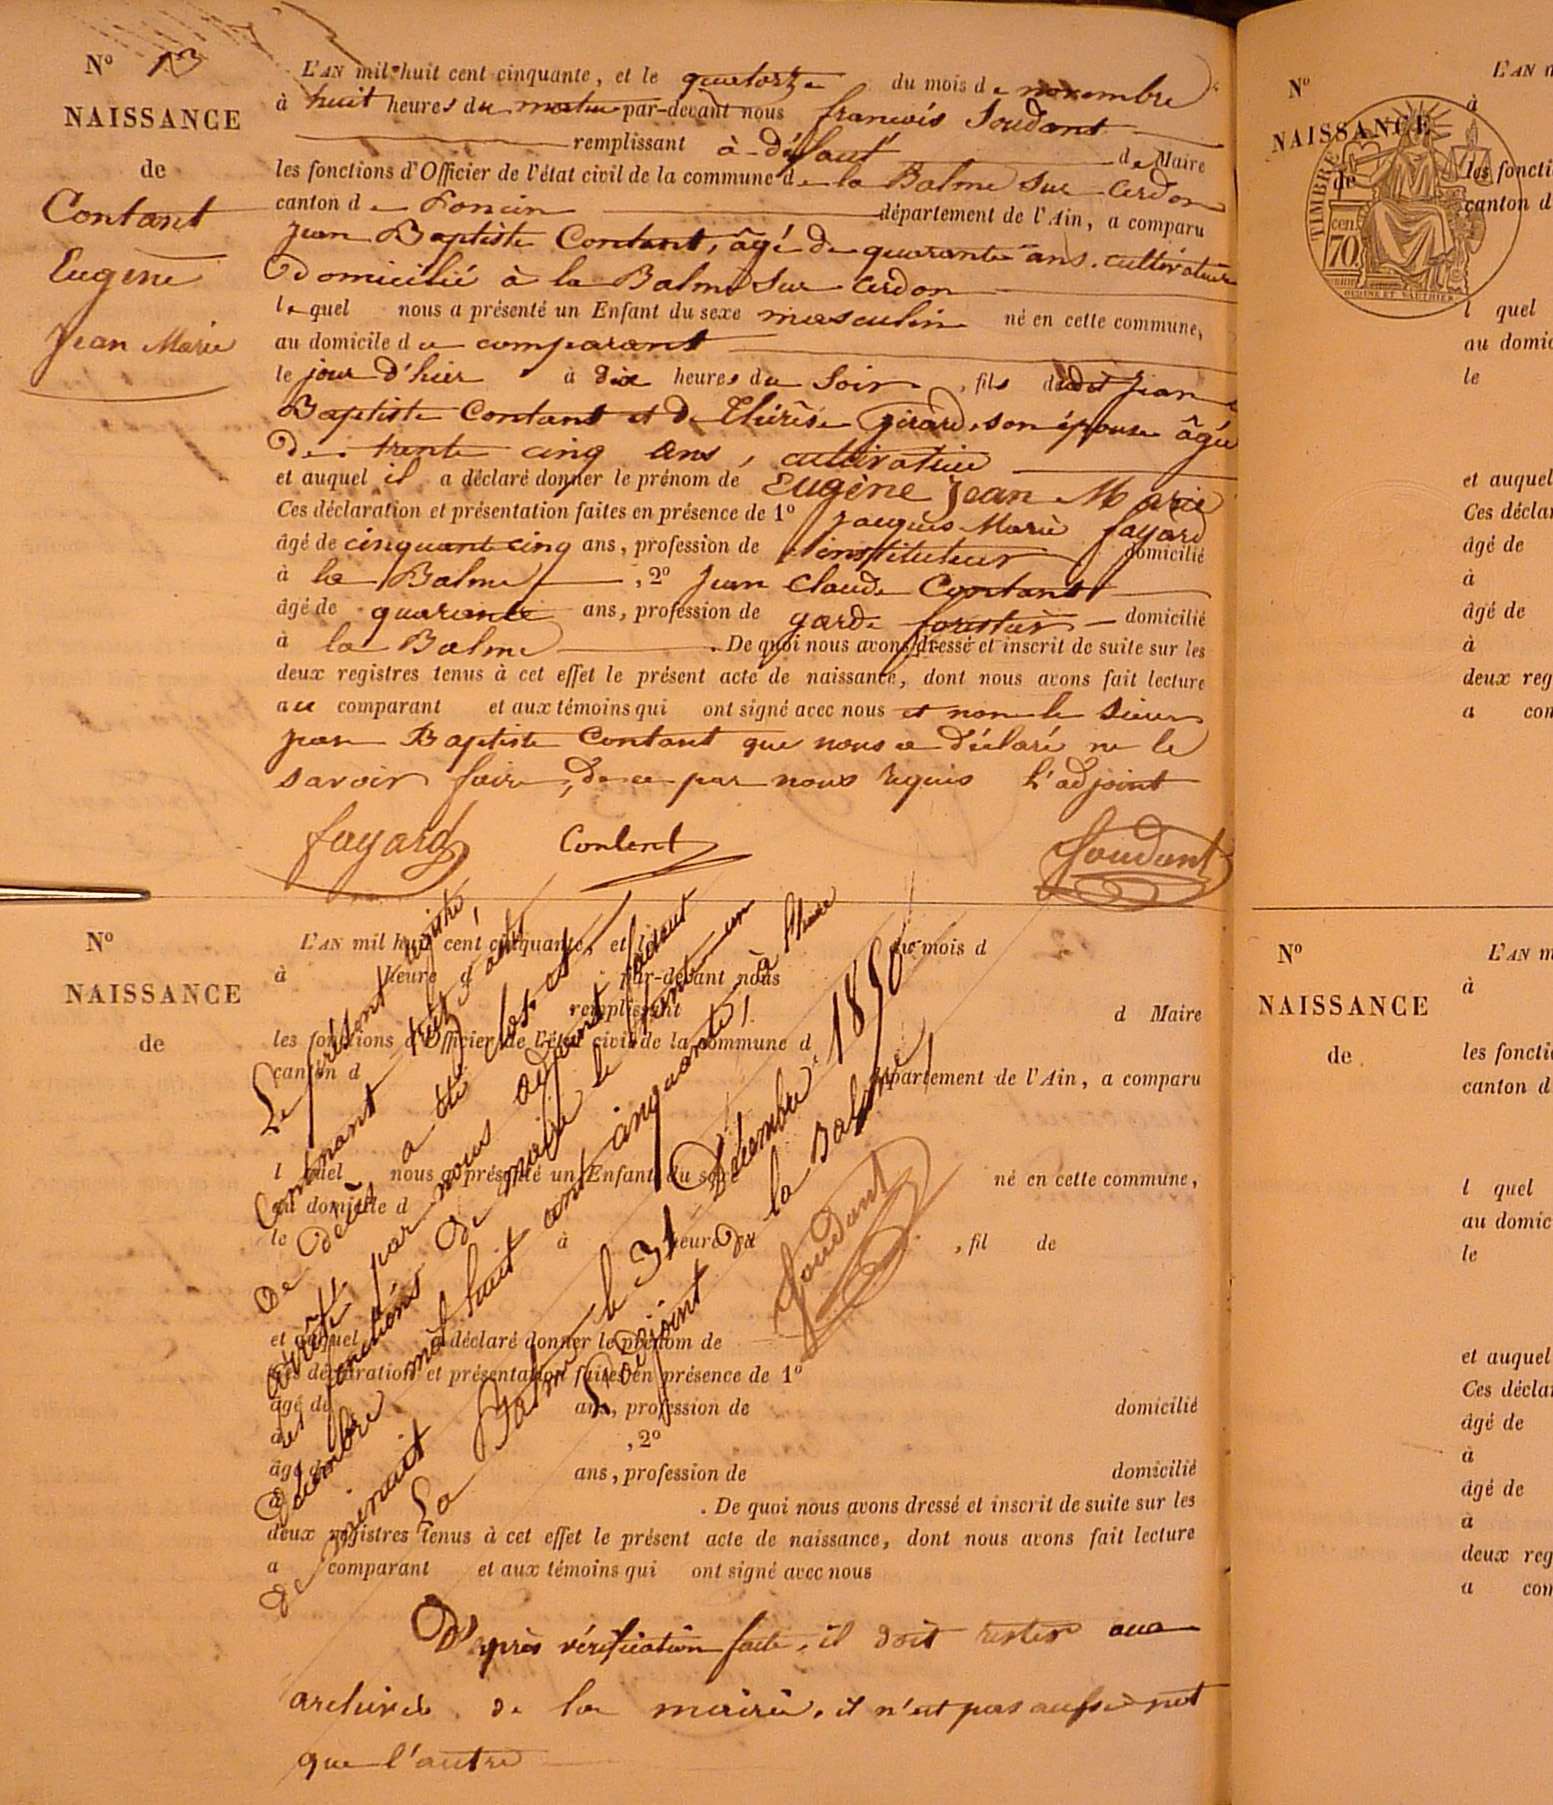 Nº 13
NAISSANCE
de
Contant
Eugène
Jean Marie
L'AN mil huit cent cinquante, et le quatorze du mois de novembre
à huit heures du matin par-devant nous francois Soudant
remplissant à défaut de Maire
les fonctions d'Officier de l'état civil de la commune de la Balme sur Cerdon
canton de Poncin département de l'Ain, a comparu
jean Baptiste Contant, âgé de quarante ans, cultivateur
Domicilié à la Balme sur Cerdon
lequel nous a présenté un Enfant du sexe masculin né en cette commune,
au domicile du comparant
le jour d'hier à dix heures du Soir, fils dudit jean
Baptiste Contant et de Thérèse Girard, son épouse âgée
De trente cinq ans, cultivatrice
et auquel il a déclaré donner le prénom de Eugène Jean Marie
Ces déclaration et présentation faites en présence de 1º Jacques Marie fayard
âgé de cinquante cinq ans, profession de instituteur domicilié
à la Balme, 2º Jean Claude Contant
âgé de quarante ans, profession de garde forestier domicilié
à la Balme. De quoi nous avons dressé et inscrit de suite sur les
deux registres tenus à cet effet le présent acte de naissance, dont nous avons fait lecture
au comparant et aux témoins qui ont signé avec nous et non le sieur
jean Baptiste Contant que nous a déclaré ne le
savoir faire, de ce par nous requis L'adjoint
fayard Contant Soudant
Nº
NAISSANCE
de
L'AN mil huit cent cinquante, et le du mois d
à heure d par-devant nous
remplissant d Maire
les fonctions d'Officier de l'état civil de la commune d
canton d département de l'Ain, a comparu
l quel nous a présenté un Enfant du sexe né en cette commune,
au domicile d
le à heure d , fil de
et auquel a déclaré donner le prénom de
Ces déclaration et présentation faites en présence de 1º
âgé de ans, profession de domicilié
à , 2º
âgé de ans, profession de domicilié
à . De quoi nous avons dressé et inscrit de suite sur les
deux registres tenus à cet effet le présent acte de naissance, dont nous avons fait lecture
a comparant et aux témoins qui ont signé avec nous
Le présent registre
Contenant huit actes
De décès a été clos et
arrêté par nous adjoint faisant
les fonctions De maire le trente un
Décembre mil huit cent cinquante, à l'heure
De minuit
La Balme le 31 Décembre 1850
L'adjoint de la Balme,
Soudant
D'après vérification faite, il doit rester aux
archives de la mairie, il n'est pas aussi net
que l'autre
Nº
NAISSANCE
de
TIMBRE
70
L'AN m
à
les foncti
canton d
l quel
au domic
le
et auquel
Ces décla
âgé de
à
âgé de
à
deux reg
a com
Nº
NAISSANCE
de
L'AN m
à
les foncti
canton d
l quel
au domic
le
et auquel
Ces déclar
âgé de
à
âgé de
à
deux reg
a com